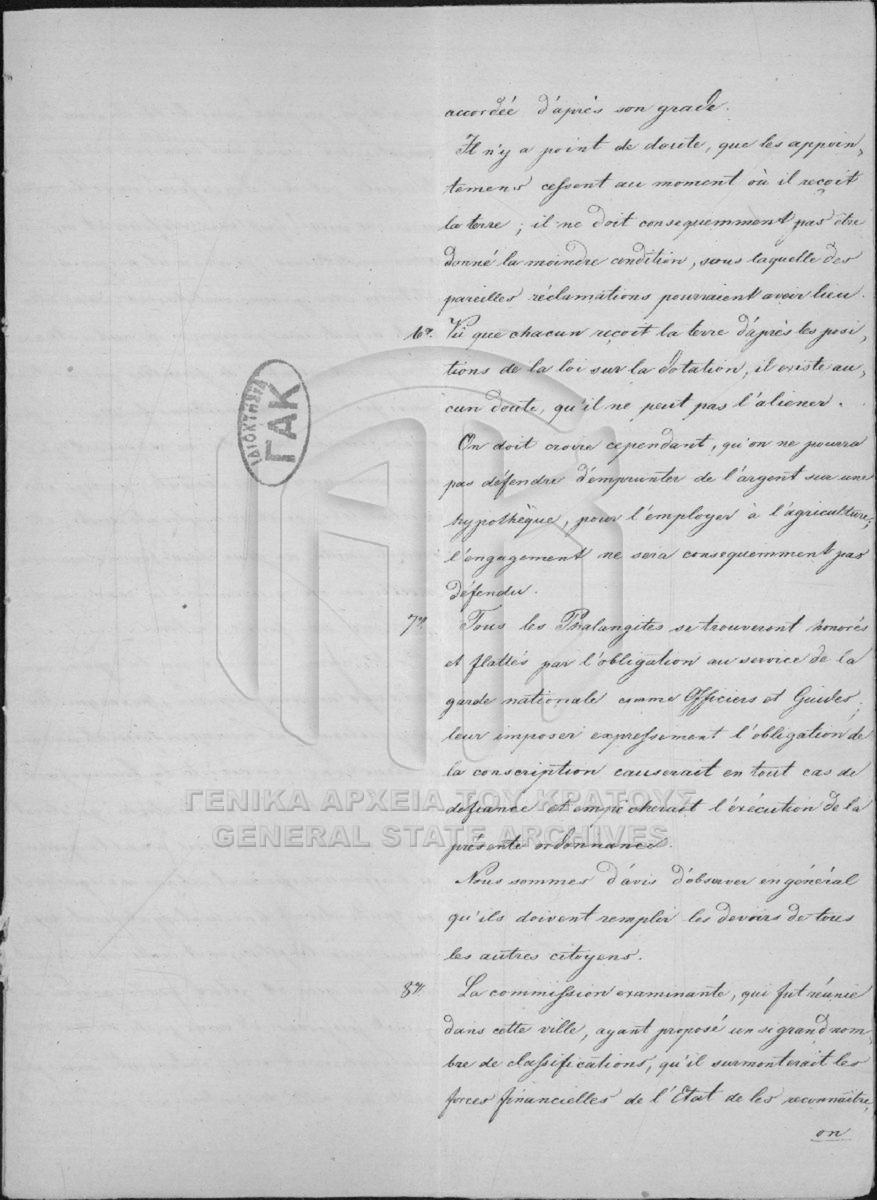 accordéé d'après son grade.
Il n'y a point de doute, que les appoin,
temens cessent au moment où il reçoit
la terre ; il ne doit consequemment pas être
donné la moindre condition, sous laquelle des
pareilles réclamations pourraient avoir lieu.
6°. Vu que chacun reçoit la terre d'après les posi,
tions de la loi sur la dotation, il existe au,
cun doute, qu'il ne peut pas l'aliener.
On doit croire cependant, qu'on ne pourra
pas défendre d'emprunter de l'argent sur une
hypothèque, pour l'employer à l'agriculture;
l'engagement ne sera consequemment pas
défendu.
7°. Tous les Phalangites se trouveront honorés
et flattés par l'obligation au service de la
garde nationale comme Officiers et Guides;
leur imposer expressement l'obligation de
la conscription causerait en tout cas de
defiance et empêcherait l'éxécution de la
présente ordonnance.
Nous sommes d'avis d'observer en général
qu'ils doivent remplir les devoirs de tous
les autres citoyens.
8°. La commission examinante, qui fut réunie
dans cette ville, ayant proposé un si grand nom,
bre de classifications, qu'il surmonterait les
forces financielles de l'Etat de les reconnaître,
on
ΙΔΙΟΚΤΗΣΙΑ
ΓΑΚ
ΓΕΝΙΚΑ ΑΡΧΕΙΑ ΤΟΥ ΚΡΑΤΟΥΣ
GENERAL STATE ARCHIVES